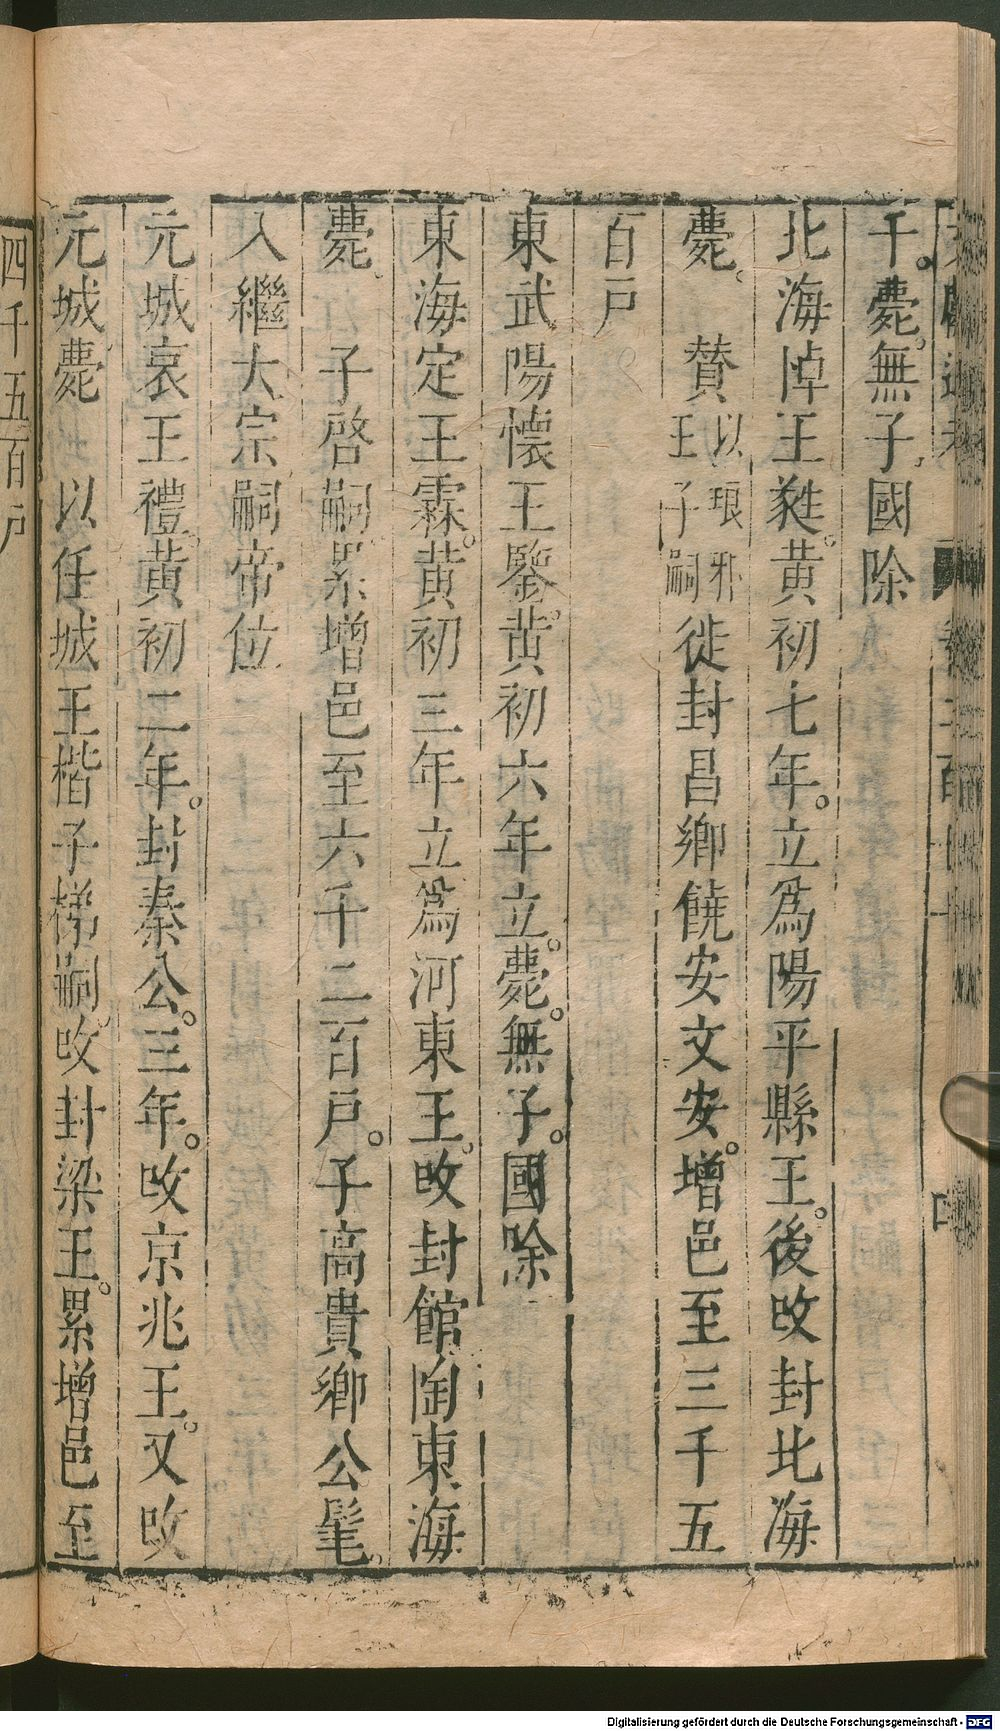 千。薨。無子。國除
北海悼王蕤。黃初七年。立爲陽平縣王。後改封北海
薨。　贊以琅邪王子嗣徙封昌鄉饒安文安。增邑至三千五
百戸
東武陽懷王鑒。黃初六年立。薨。無子。國除
東海定王霖。黃初三年立爲河東王。改封館陶東海
薨。　子啓嗣累增邑至六千二百戸。子高貴鄉公髦。
入繼大宗嗣帝位
元城哀王禮。黃初二年。封秦公。三年。改京兆王。又改
元城薨　以任城王楷子悌嗣。改封梁王。累增邑至
四千五百戸
Digitalisierung gefördert durch die Deutsche Forschungsgemeinschaft - DFG